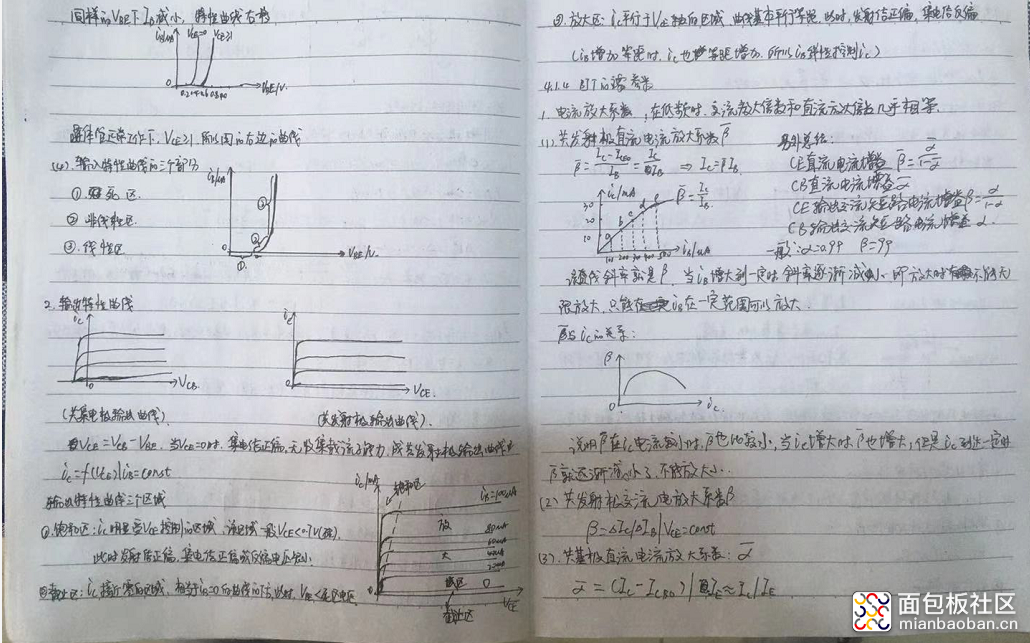 同样的VBE下 IB减小, 特性曲线右移
iB/uA
VCE=0
VCE≥1
0
VBE/V.
VCE≥1 所以用的右边的曲线
(4). 输入特性曲线的三个部分
①. 死区.
②. 非线性区.
③. 线性区
iB/uA
③
②
①
0
VBE/V.
2. 输出特性曲线
iC
0
VCB
iC
0
VCE.
(共集电极输出曲线).
(共发射极输出曲线).
VCB = VCE - VBE. 当VCB=0时, 集电结正偏, 无收集载流子能力,
iC = f(VCE)|iB=const
输出特性曲线三个区域
①. 饱和区: iC明显受VCE控制的区域, 该区域一般VCE<0.7V(硅).
此时发射结正偏, 集电结正偏或反偏电压很小.
②截止区: iC接近零的区域, 相当于iB=0的曲线的下方, 此时, VBE<死区电压
iC/mA
饱和区
iB=100uA
放
80uA
60uA
大
40uA
20uA
区
0
0
截止区
VCE
③. 放大区: iC平行于VCE轴的区域, 曲线基本平行等距. 此时, 发射结正偏, 集电结反偏
(iB增加等距时, iC也等距增加. 所以iB线性控制iC)
4.1.4 BJT的
1. 电流放大系数, 在低频时, 交流放大倍数和直流放大倍数几乎相等.
(1). 共发射极直流电流放大系数β̅
β̅ = (IC - ICEO)/IB = IC/IB ⇒ IC = βIB.
另外总结:
CE直流电流增益 β̅ = α̅/(1-α̅)
CB直流电流增益 α̅
CE输出交流短路电流增益 β = α/(1-α)
CB输出交流短路电流增益 α.
一般: α=0.99 β=99
iC/mA
30
20
10
a
b
c
d
e
β̅ = IC/IB
iB/uA
该直线斜率就是β, 当iB增大到一定时, 斜率逐渐减小, 即放大时不能无
限放大, 只能在iB在一定范围可以放大.
β̅与iC的关系:
β
0
iC.
说明β̅在iC电流较小时, β̅也比较小, 当iC增大时, β̅也增大, 但是iC到达一定时
β̅就逐渐减小了, 不能放大了...
(2) 共发射极交流电流放大系数β
β = ΔIC/ΔIB|VCE=const
(3). 共基极直流电流放大系数: α̅
α̅ = (IC - ICBO)/IE ≈ IC/IE
面包板社区
mianbaoban.cn